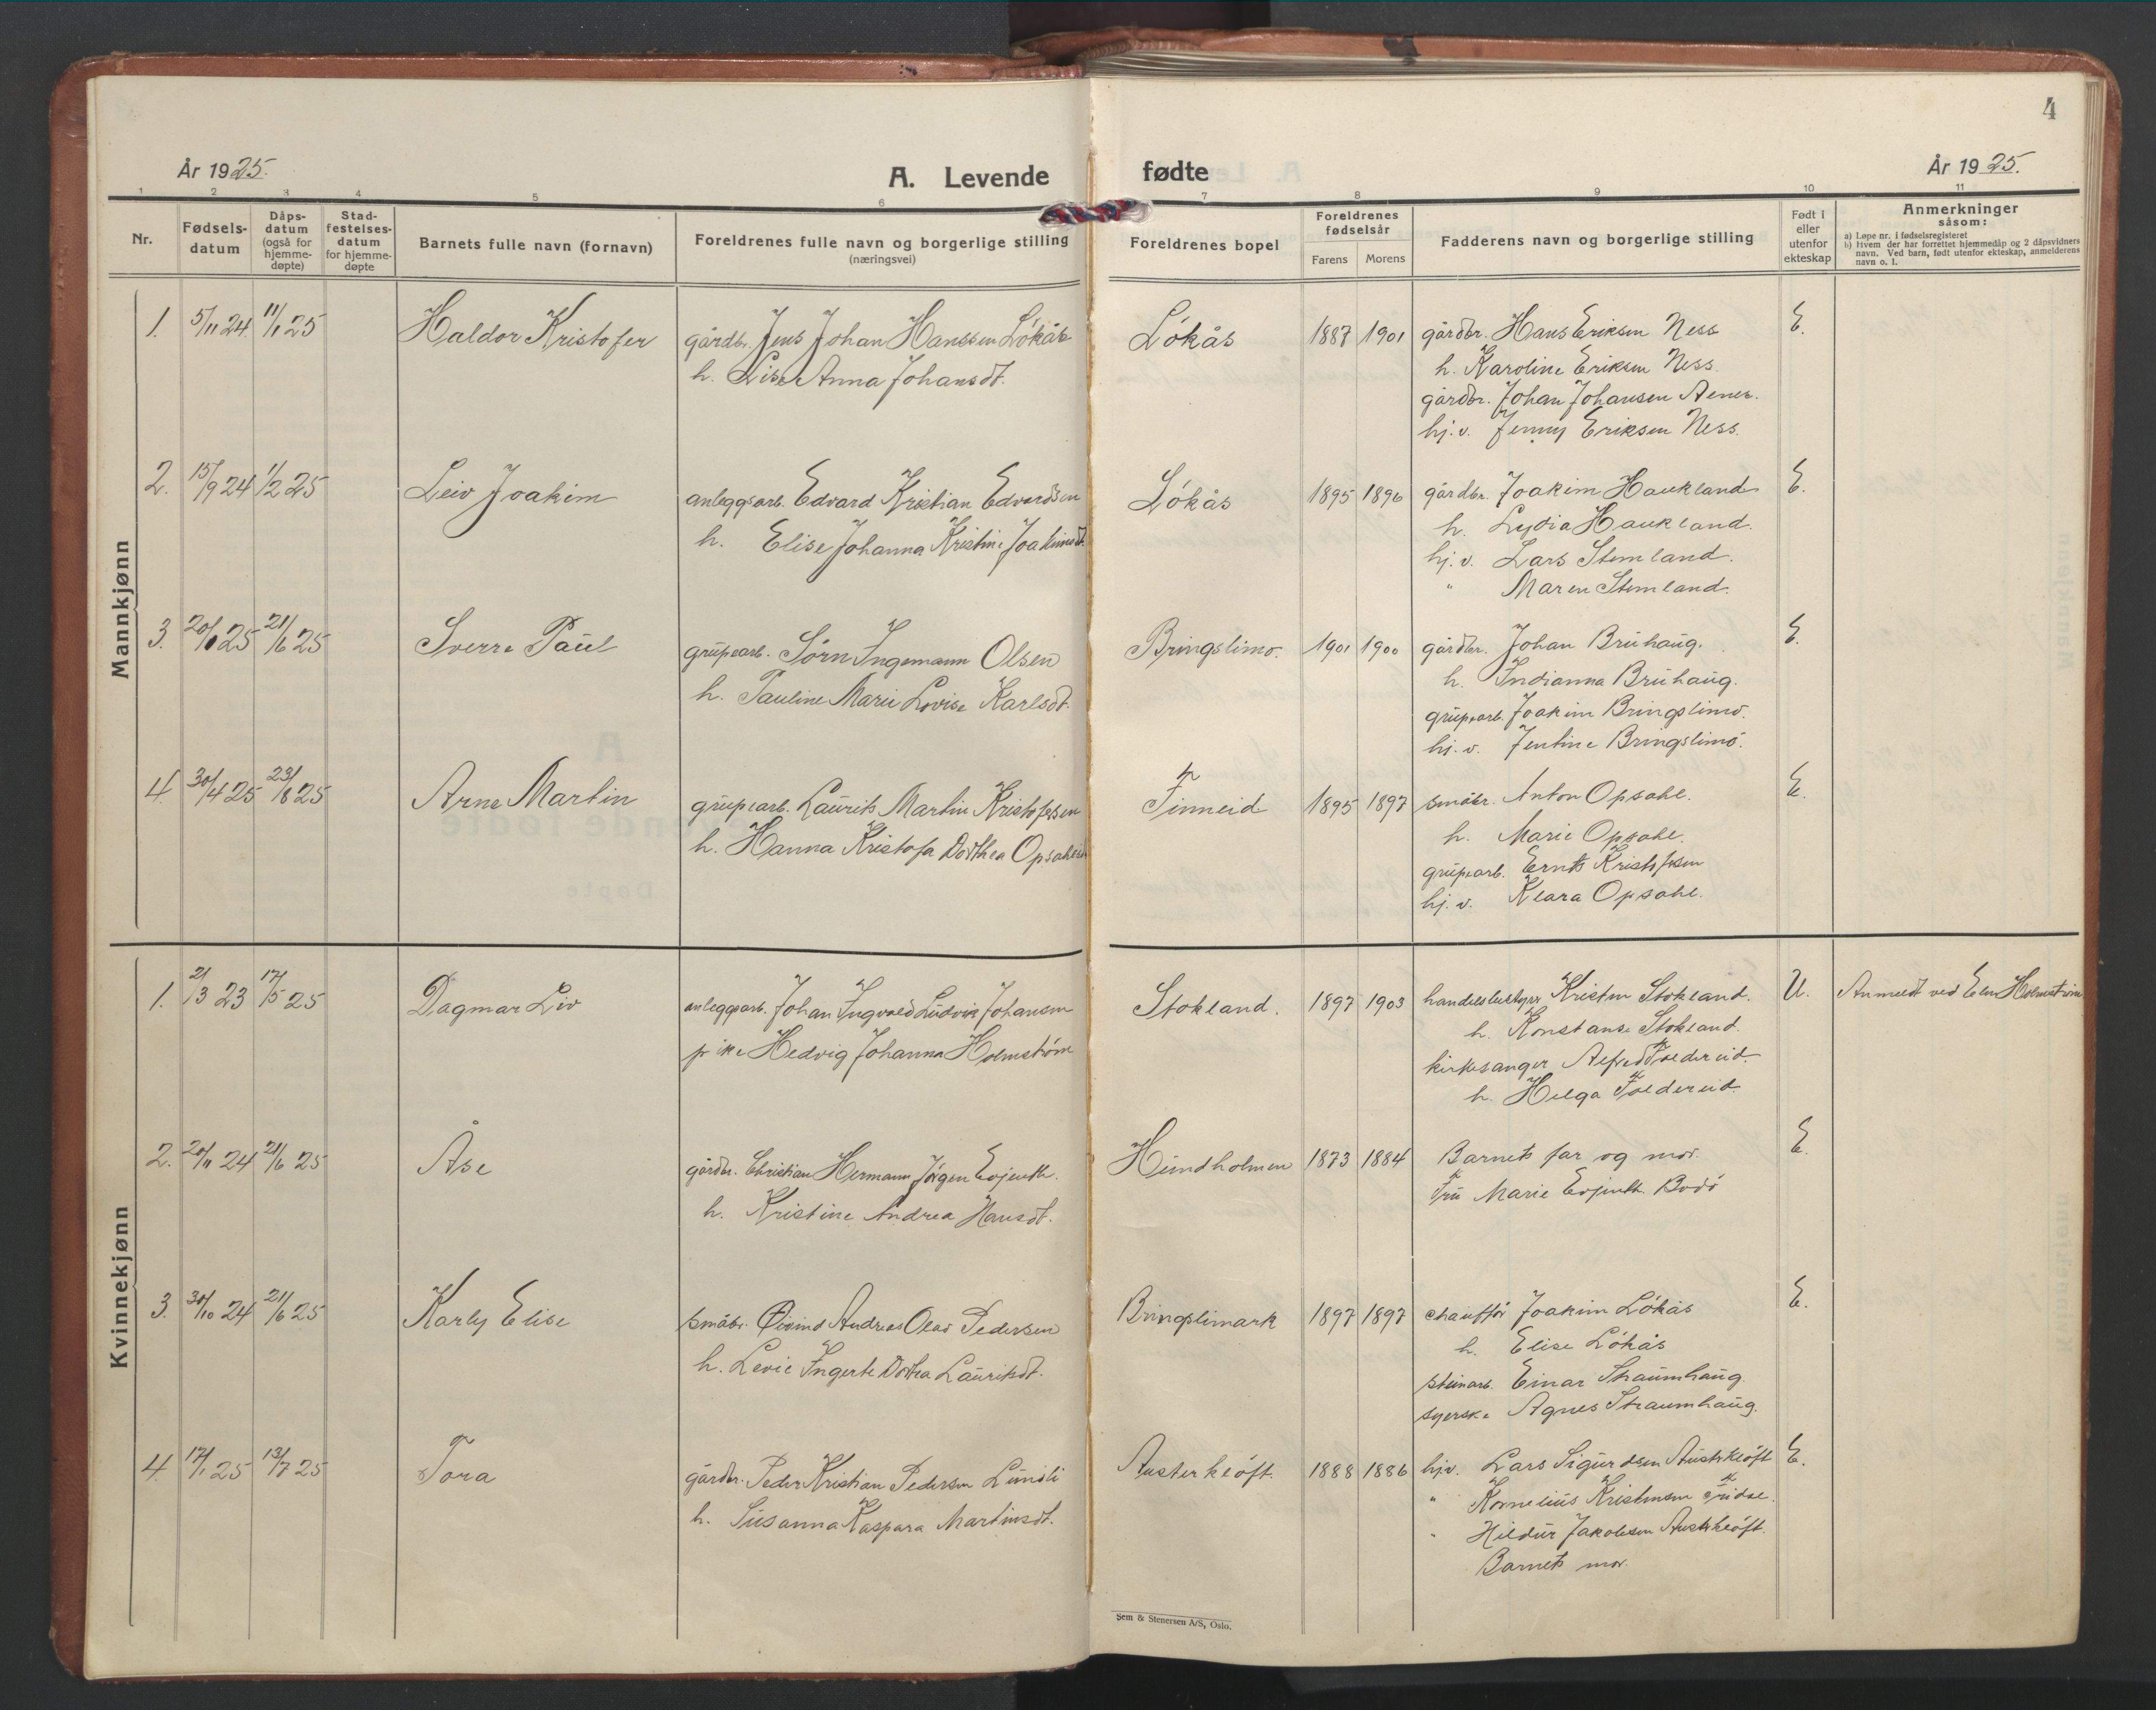 4
År 1925.
A. Levende fødte
År 1925.
1 2 3 4 5 6 7 8 9 10 11
Nr.
Fødsels-
datum
Dåps-
datum
(også for
hjemme-
døpte)
Stad-
festelses-
datum
for hjemme-
døpte
Barnets fulle navn (fornavn)
Foreldrenes fulle navn og borgerlige stilling
(næringsvei)
Foreldrenes bopel
Foreldrenes
fødselsår
Farens Morens
Fadderens navn og borgerlige stilling
Født i
eller
utenfor
ekteskap
Anmerkninger
såsom:
a) Løpe nr. i fødselsregisteret
b) Hvem der har forrettet hjemmedåp og 2 dåpsvidners
navn. Ved barn, født utenfor ekteskap, anmelderens
navn o. l.
Mannkjønn
1. 5/11 24 11/1 25 Haldor Kristofer gårdbr. Jens Johan Hanssen Løkås Løkås 1887 1901 gårdbr. Hans Eriksen Ness E.
h. Lise Anna Johansdt. h. Karoline Eriksen Ness.
gårdbr. Johan Johansen
hj.v. Jenny Eriksen Ness.
2. 15/9 24 1/2 25 Leiv Joakim anleggsarb. Edvard Kristian Edvardsen Løkås 1895 1896 gårdbr. Joakim Haukland E.
h. Elise Johanna Kristine Joakimsdt. h. Lydia Haukland.
hj.v. Lars Stemland.
" Maren Stemland.
3. 20/1 25 21/6 25 Sverre Paul grubearb. Sörn Ingemann Olsen Bringslimo. 1901 1900 gårdbr. Johan Bruhaug. E.
h. Pauline Marie Lovise Karlsdt. h. Indianna Bruhaug.
grubearb. Joakim Bringslimo.
hj.v. Jentine Bringslimo.
4. 30/4 25 23/8 25 Arne Martin grubearb. Laurits Martin Kristofersen Finneid 1895 1897 småbr. Anton Opsahl. E.
h. Hanna Kristofa Dorthea h. Marie Opsahl.
grubearb. Kristofersen
hj.v. Klara Opsahl.
Kvinnekjønn
1. 21/3 23 17/5 25 Dagmar Liv anleggsarb. Johan Ingvald Ludvik Johansen Stokland. 1897 1903 handelsbestyrer Kristen Stokland. U. Anmeldt ved Holmstrøm
pike Hedvig Johanna Holmstrøm h. Konstanse Stokland.
kirkesanger Alfred Foldereid.
h. Helga Foldereid.
2. 20/11 24 21/6 25 Åse gårdbr. Christian Hermann Jörgen Evjenth. Hundholmen 1873 1884 Barnets far og mor. E.
h. Kristine Andrea Hansdt. Fru Marie Evjenth. Bodö
3. 30/10 24 21/6 25 Karly Elise småbr. Öivind Andreas Olav Pedersen Bringslimark 1897 1897 chaufför Joakim Løkås E.
h. Ingerte Dortea Lauritsdt. h. Elise Løkås
steinarb. Einar Straumhaug.
syerske Agnes Straumhaug.
4. 17/1 25 13/7 25 Tora gårdbr. Peder Kristian Pedersen Lundli Austerkløft. 1888 1886 hj.v. Lars Sigurdsen Austerkløft E.
h. Susanna Kaspara Martinsdt. " Kornelius Kristensen
" Hildur Jakobsen Austerkløft.
Barnets mor.
Sem & Stenersen A/S, Oslo.